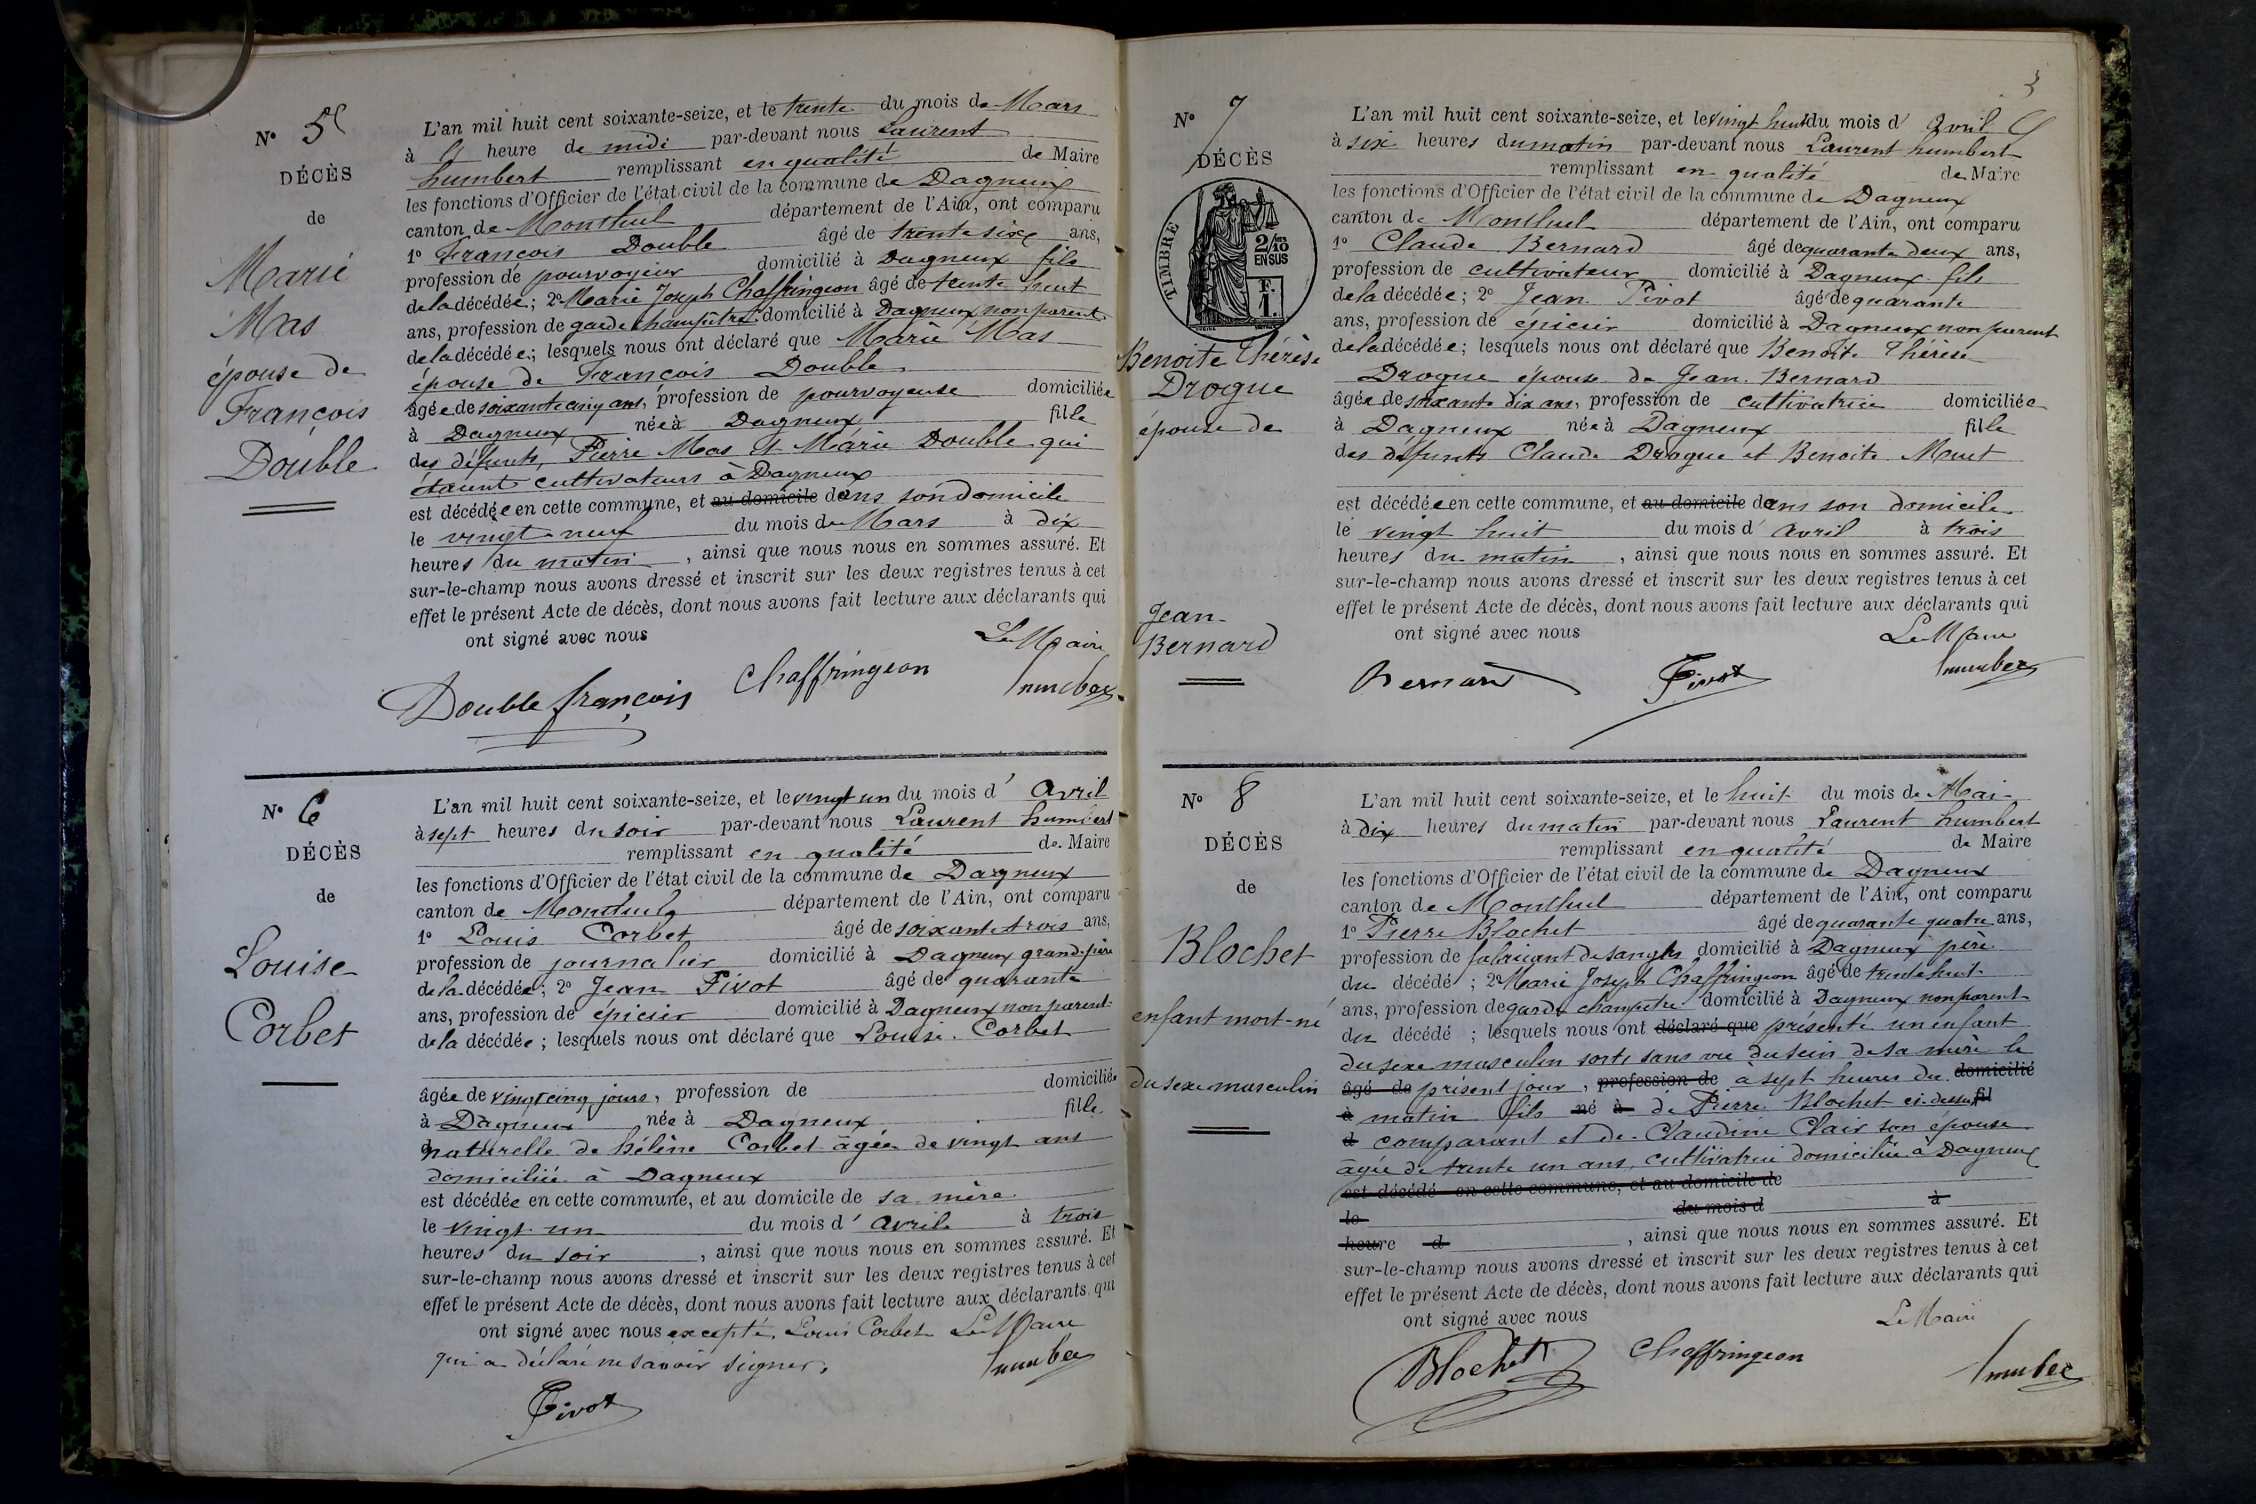 N° 5
DÉCÈS
de
Marie
Mas
épouse de
François
Double
L'an mil huit cent soixante-seize, et le trente du mois de Mars
à heure de midi par-devant nous Laurent
humbert remplissant en qualité de Maire
les fonctions d'Officier de l'état civil de la commune de Dagneux
canton de Montluel département de l'Ain, ont comparu
1° François Double âgé de trente six ans,
profession de pourvoyeur domicilié à Dagneux fils
de la décédée; 2° Marie Joseph Chaffringeon âgé de trente huit
ans, profession de garde champêtre domicilié à Dagneux non parent
de la décédée; lesquels nous ont déclaré que Marie Mas
épouse de François Double
âgée de soixante cinq ans, profession de pourvoyeuse domiciliée
à Dagneux née à Dagneux fille
des défunts, Pierre Mas et Marie Double qui
étaient cultivateurs à Dagneux
est décédée en cette commune, et au domicile dans son domicile
le vingt-neuf du mois de Mars à dix
heures du matin, ainsi que nous nous en sommes assuré. Et
sur-le-champ nous avons dressé et inscrit sur les deux registres tenus à cet
effet le présent Acte de décès, dont nous avons fait lecture aux déclarants qui
ont signé avec nous Le Maire
Double françois Chaffringeon humbert
N° 6
DÉCÈS
de
Louise
Corbet
L'an mil huit cent soixante-seize, et le vingt un du mois d' Avril
à sept heures du soir par-devant nous Laurent humbert
remplissant en qualité de Maire
les fonctions d'Officier de l'état civil de la commune de Dagneux
canton de Montluel département de l'Ain, ont comparu
1° Louis Corbet âgé de soixante trois ans,
profession de journalier domicilié à Dagneux grand-père
de la décédée; 2° Jean Pivot âgé de quarante
ans, profession de épicier domicilié à Dagneux non parent
de la décédée; lesquels nous ont déclaré que Louise Corbet
âgée de vingt cinq jours, profession de domiciliée
à Dagneux née à Dagneux fille
naturelle de hélène Corbet âgée de vingt ans
domiciliée à Dagneux
est décédée en cette commune, et au domicile de sa mère
le vingt un du mois d' avril à trois
heures du soir, ainsi que nous nous en sommes assuré. Et
sur-le-champ nous avons dressé et inscrit sur les deux registres tenus à cet
effet le présent Acte de décès, dont nous avons fait lecture aux déclarants qui
ont signé avec nous excepté Louis Corbet Le Maire
qui a déclaré ne savoir signer, humbert
Pivot
3
N° 7
DÉCÈS
TIMBRE
2/10
EN SUS
F.
1.
Benoite Thérèse
Drogue
épouse de
Jean
Bernard
L'an mil huit cent soixante-seize, et le vingt huit du mois d' Avril
à six heures du matin par-devant nous Laurent humbert
remplissant en qualité de Maire
les fonctions d'Officier de l'état civil de la commune de Dagneux
canton de Montluel département de l'Ain, ont comparu
1° Claude Bernard âgé de quarante deux ans,
profession de cultivateur domicilié à Dagneux fils
de la décédée; 2° Jean Pivot âgé de quarante
ans, profession de épicier domicilié à Dagneux non parent
de la décédée; lesquels nous ont déclaré que Benoite Thérèse
Drogue épouse de Jean Bernard
âgée de soixante dix ans, profession de cultivatrice domiciliée
à Dagneux née à Dagneux fille
des défunts Claude Drogue et Benoite
est décédée en cette commune, et au domicile dans son domicile
le vingt huit du mois d' avril à trois
heures du matin, ainsi que nous nous en sommes assuré. Et
sur-le-champ nous avons dressé et inscrit sur les deux registres tenus à cet
effet le présent Acte de décès, dont nous avons fait lecture aux déclarants qui
ont signé avec nous Le Maire
Bernard Pivot humbert
N° 8
DÉCÈS
de
Blochet
enfant mort-né
du sexe masculin
L'an mil huit cent soixante-seize, et le huit du mois de Mai
à dix heures du matin par-devant nous Laurent humbert
remplissant en qualité de Maire
les fonctions d'Officier de l'état civil de la commune de Dagneux
canton de Montluel département de l'Ain, ont comparu
1° Pierre Blochet âgé de quarante quatre ans,
profession de fabricant de sangles domicilié à Dagneux père
du décédé; 2° Marie Joseph Chaffringeon âgé de trente huit
ans, profession de garde champêtre domicilié à Dagneux non parent
du décédé; lesquels nous ont déclaré que présenté un enfant
du sexe masculin sorti sans vie du sein de sa mère le
âgé de présent jour, profession de à sept heures du domicilié
à matin fils né à de Pierre Blochet ci-dessus fil
d comparant et de Claudine Clair son épouse
âgée de trente un ans, cultivatrice domiciliée à Dagneux
est décédé en cette commune, et au domicile de
le du mois d à
heure d, ainsi que nous nous en sommes assuré. Et
sur-le-champ nous avons dressé et inscrit sur les deux registres tenus à cet
effet le présent Acte de décès, dont nous avons fait lecture aux déclarants qui
ont signé avec nous Le Maire
Blochet Chaffringeon humbert